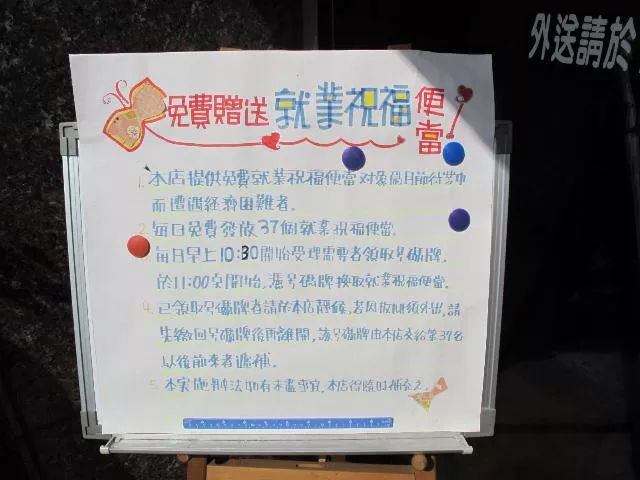 外送請於
免費贈送就業祝福便當
1. 本店提供免費就業祝福便當對象為目前待業中
而遭遇經濟困難者.
2. 每日免費發放37個就業祝福便當.
每日早上10:30開始受理需要者領取號碼牌,
於11:00點開始,憑號碼牌換取就業祝福便當.
4. 已領取號碼牌者請於本店靜候,若因故必須外出,請
先繳回號碼牌後再離開,該號碼牌由本店交給第37名
以後前來者遞補.
5. 本實施辦法如有未盡事宜,本店得隨時補充之.